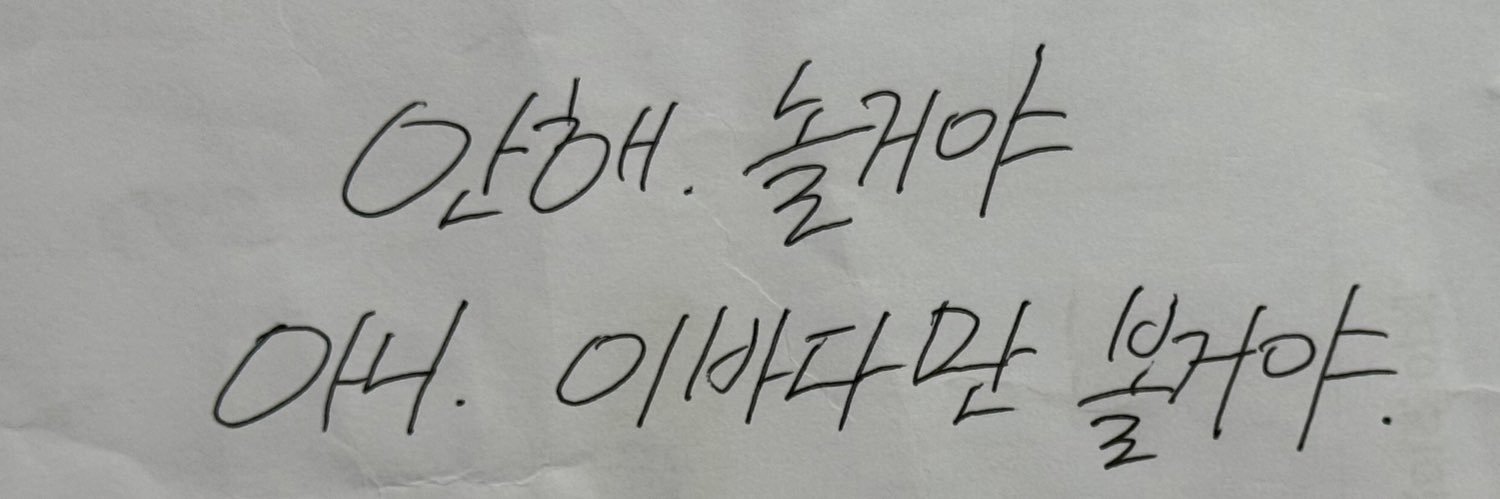 안해. 놀거야
아니. 이바다만 볼거야.